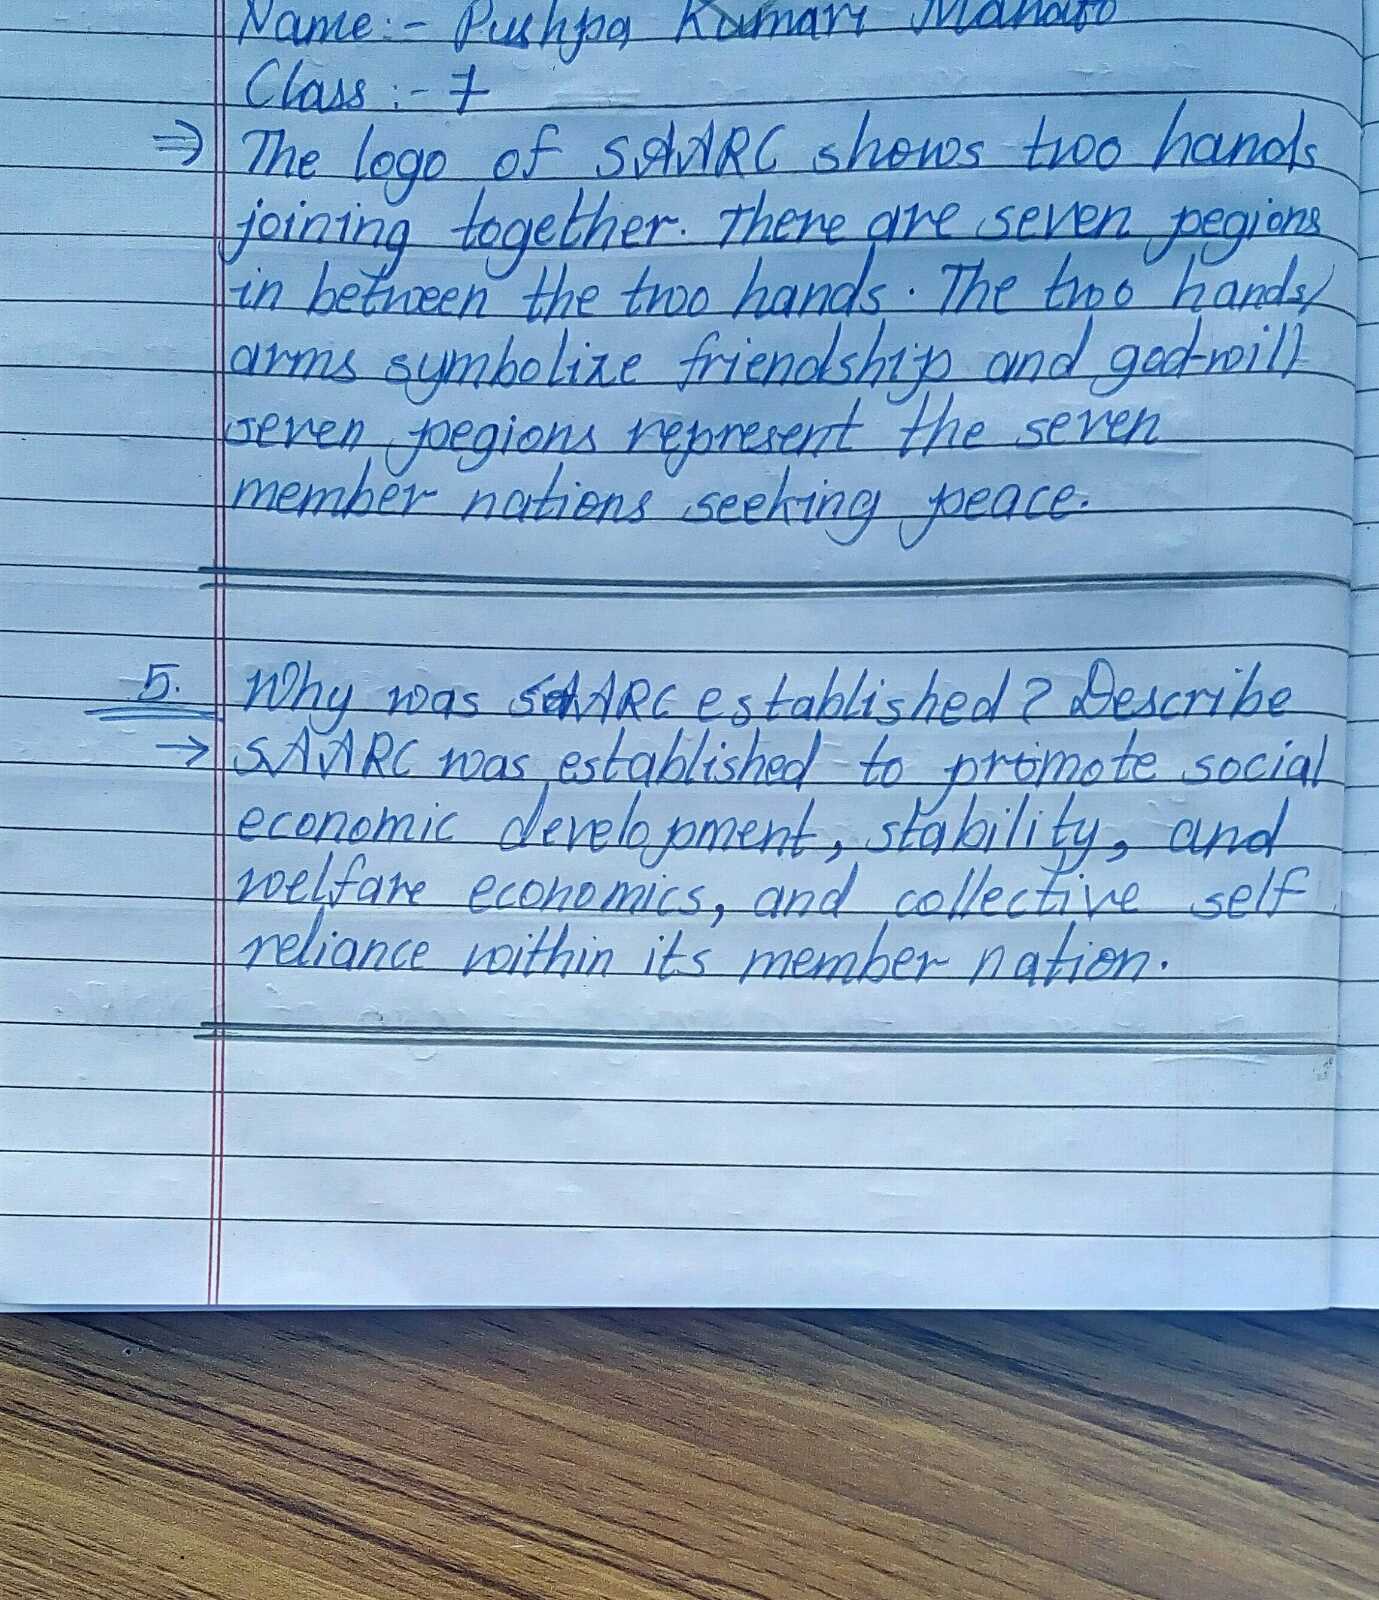 Name:- Pushpa Kumari Mahato
Class :- 7
⇒ The logo of SAARC shows two hands
joining together. There are seven pegions
in between the two hands. The two hands/
arms symbolize friendship and god-will
seven pegions represent the seven
member nations seeking peace.
5. Why was SAARC established? Describe
→ SAARC was established to promote social
economic development, stability, and
welfare economics, and collective self
reliance within its member nation.